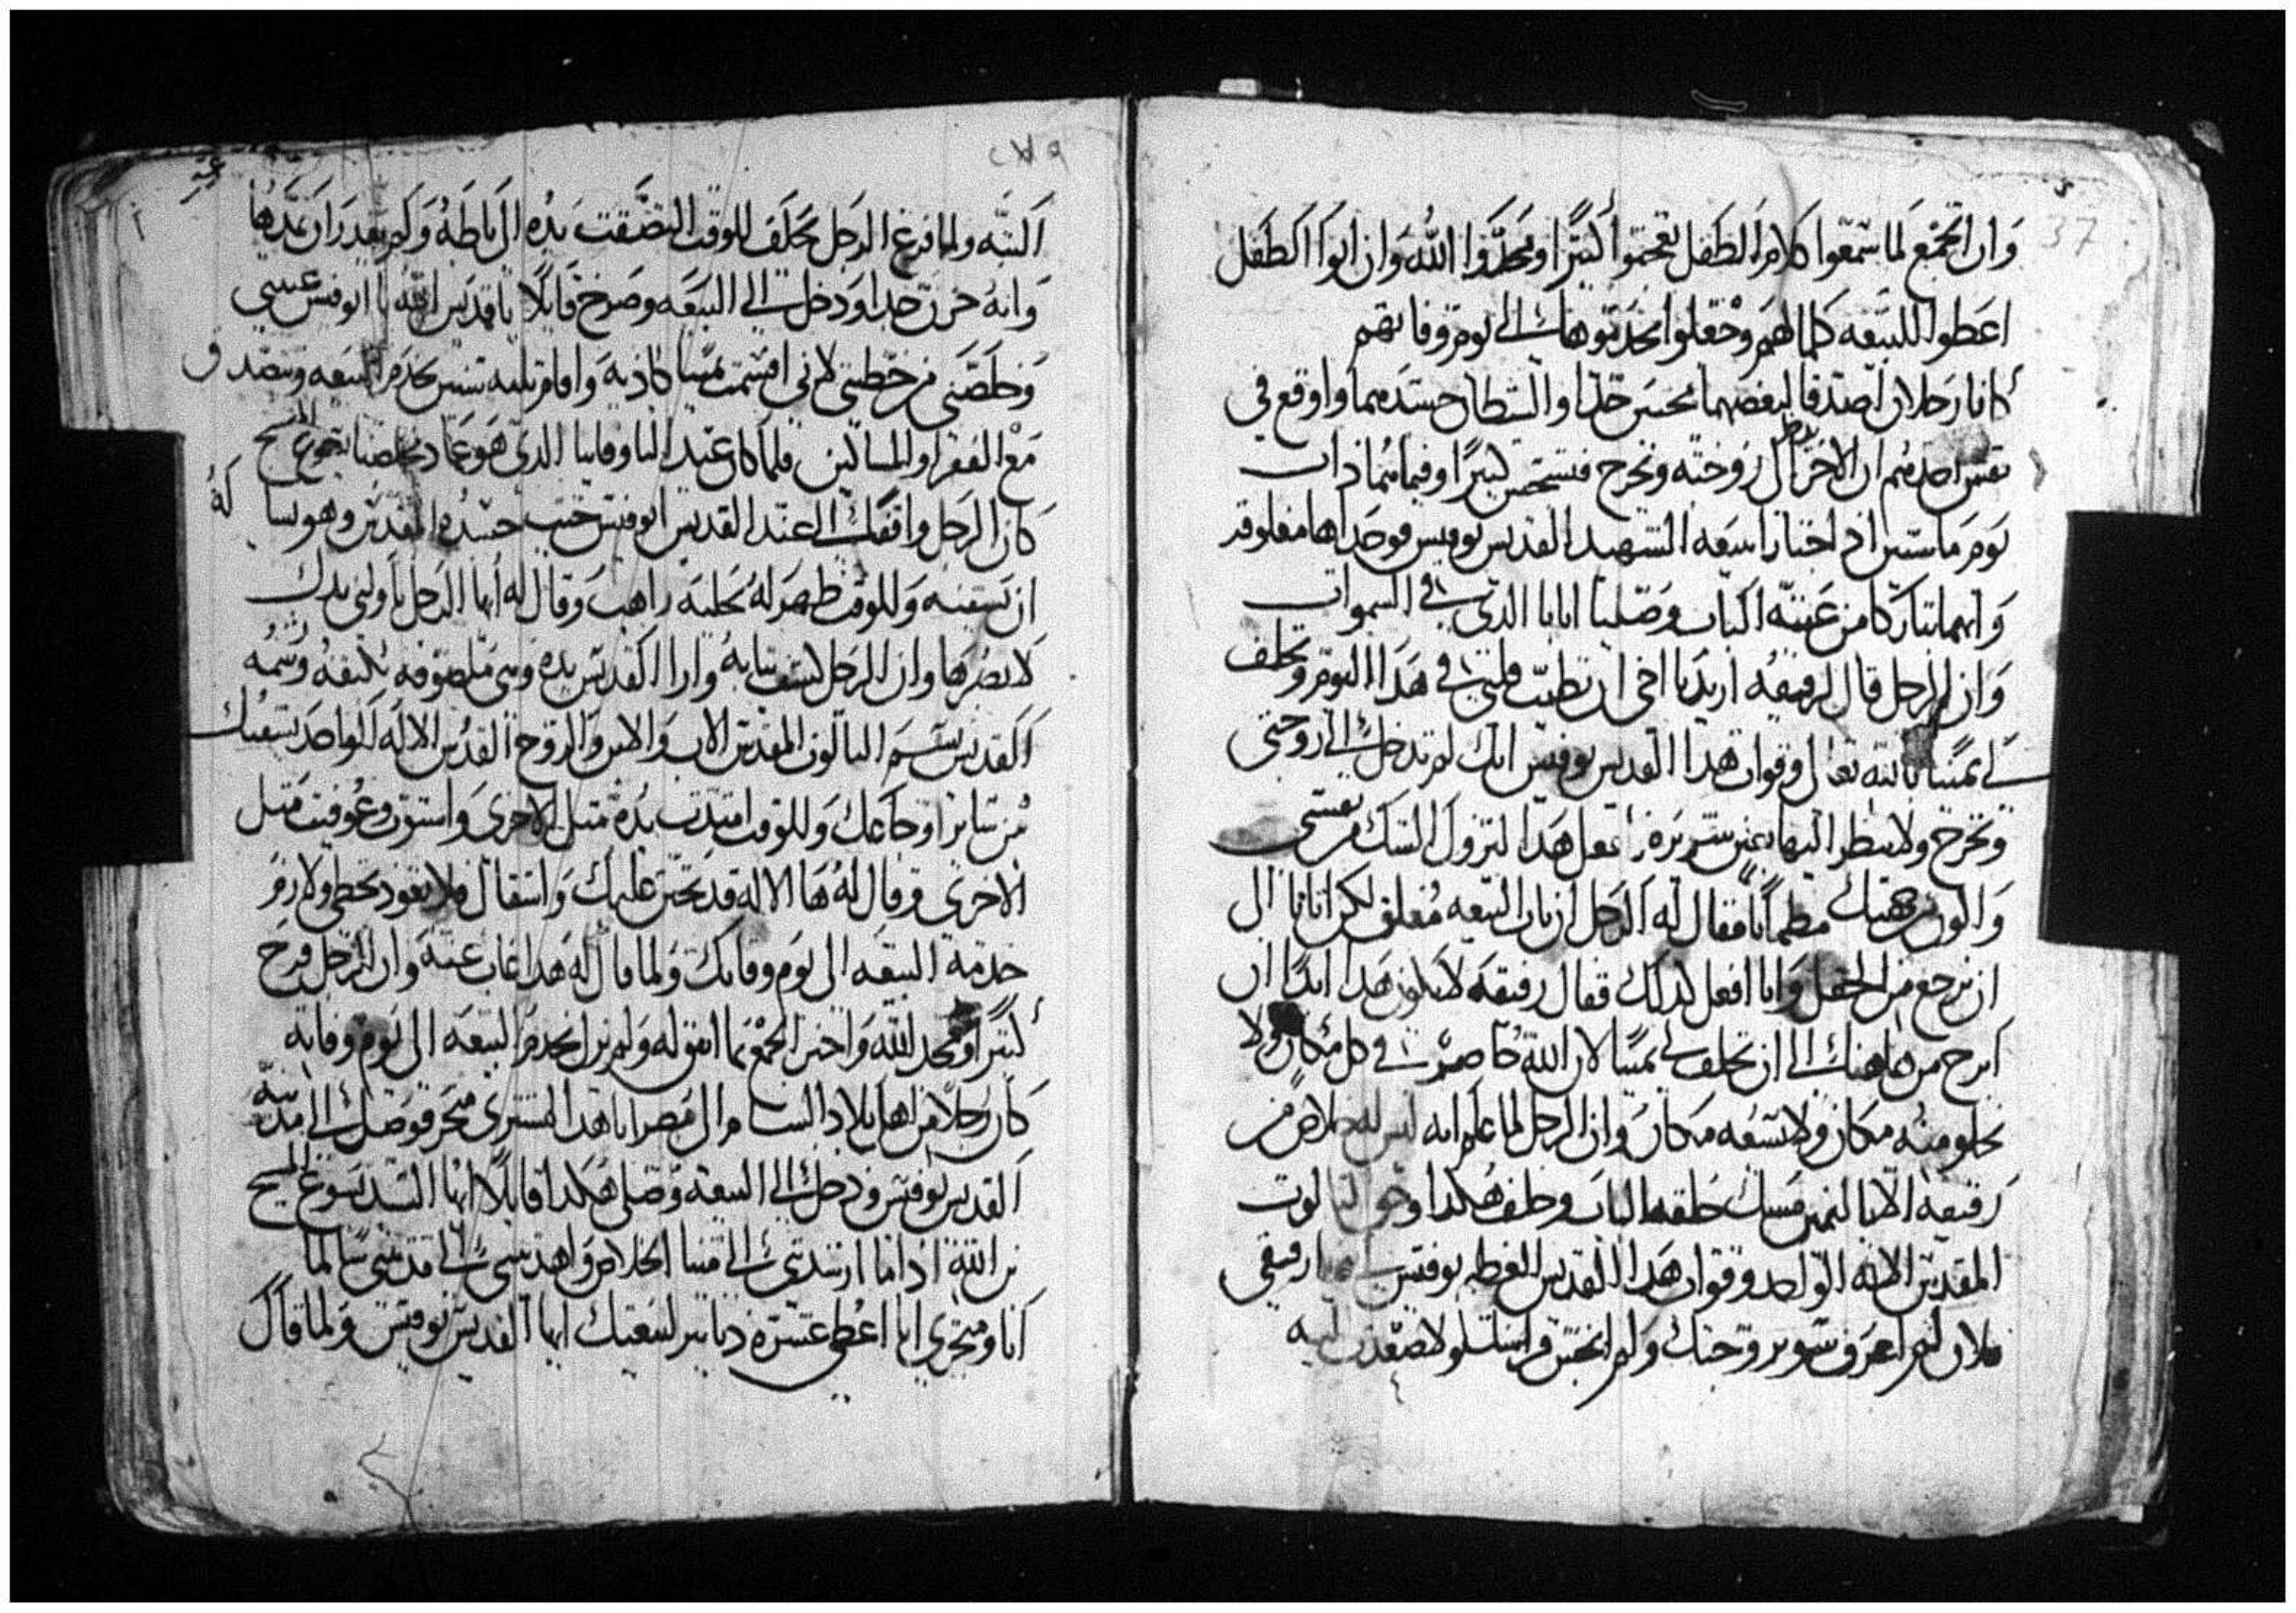 37
وان الجمع لما سمعوا كلام الطفل تعجبوا كثيرًا ومجدوا الله وان ابوا الطفل
اعطوا للبيعه كلما لهم وجعلوا يخدموها الى يوم وفاتهم
كانا رجلان اصدقا لبعضهما بعض جدا والشيطان حسدهما واوقع في
نفس احدهم ان الاخر يدخل الى زوجته ويخرج كثيرًا وفيما هما ذات
يوم ماشيين اذ اجتازا بيعه الشهيد القديس بوفيس فوجداها مغلوقه
وانهما تباركا من عتبة الباب وصليا ابانا الذي في السموات
وان الرجل قال لرفيقه اريد يا اخي ان تطيب قلبي في هذا اليوم وتحلف
لي يمينا بالله تعالى وقوات هذا القديس بوفيس انك لم تدخل الى زوجتي
وتخرج ولا تنظر اليها بعين شريره افعل هذا لتزول الشك من نفسي
واكون من جهتك مطمأنا فقال له الرجل ان باب البيعه مغلق لكن اتانا الى
ان نرجع من الحقل وانا افعل كذلك فقال رفيقه لا يكون هذا ابدًا ان
ابرح من هاهنا الى ان تحلف لي يمينا لان الله حاضر في كل مكان ولا
يخلو منه مكان ولا يسعه مكان وان الرجل لما علم انه ليس له خلاص من
رفيقه الا باليمين مسك حلقه الباب وحلف هكذا وحق الثالوت
المقدس الاله الواحد وقوات هذا القديس العظيم بوفيس يا رفيقي
فلان لم اعرف زوجتك ولم انجس فراشك ولا صعدت اليه
البته ولما فرغ الرجل يحلف للوقت التصقت يده الى باطه ولم يقدر ان يمدها
وانه حزن جدا ودخل الى البيعه وصرخ قايلا يا قديس الله يا ابوفيس عيني
وخلصني من خطيتي لاني اقسمت يمينا كاذبه واقام تلته سنين يخدم البيعه ويتصدق
مع الفقرا والمساكين فلما كان عيد الباوفانيا الذي هو عماد مخلصنا يسوع المسيح
كان الرجل واقفا الى عند القديس ابوفيس جنب جسده المقدس وهو يسا له
ان يشفيه وللوقت ظهر له بحلية راهب وقال له ايها الرجل ناولني يدك
لابصرها وان الرجل كشف تيابه وارا القديس يده وهي ملصوقه بكتفه ورشمه
القديس بسم التالوت المقدس الاب والابن والروح القدس الاله الواحد يشفيك
من ساير اوجاعك وللوقت امتدت يده متل الاخرى واستوت وعوفيت متل
الاخرى وقال له ها الاله قد تحنن عليك واستقال فلا تعود تخطي ولازم
خدمة البيعه الى يوم وفاتك ولما قال له هذا غاب عنه وان الرجل فرح
كثيرًا ومجد الله واخبر الجمع بما اتفق له ولم يزل يخدم البيعه الى يوم وفاته
كان رجلا من اهل بلاد الشام الى مصر اتا هدا ليشتري متجر فوصل الى مدينة
القديس بوفيس ودخل الى البيعه وصلى هكذا قايلا ايها السيد يسوع المسيح
بن الله اذا ما ارشدتني الى مينا الخلاص واهديتني الى مدينتي سالما
انا ومتجري انا اعطي عشرة دنانير لبيعتك ايها القديس بوفيس ولما قال